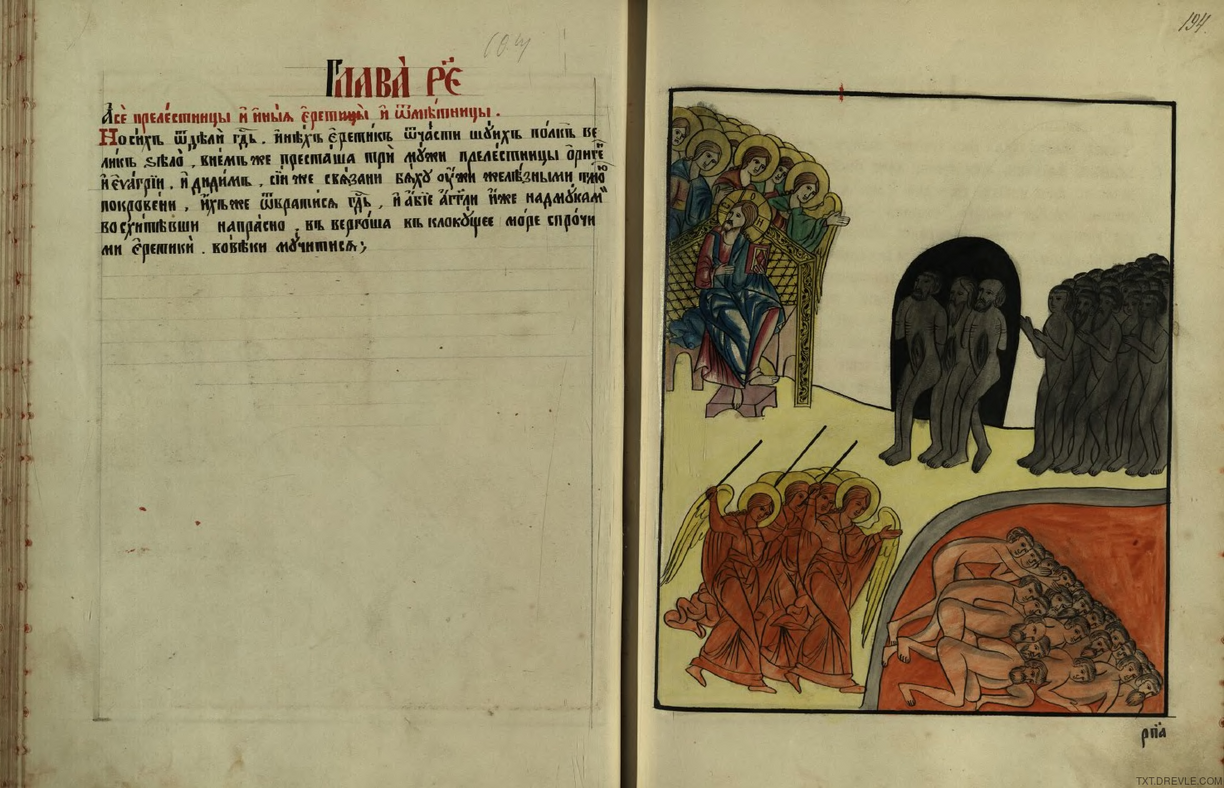 Глава̀ р҃е
А сѐ преле́стницы и҆ и҆ны́ѧ є҆рети́цы и҆ ѿме́тницы.
Но си́хъ ѿдѣлѝ гд҃ь. и҆ни́ѣхъ є҆ре́тикъ ѿча́сти шꙋ́ихъ по́лкъ ве
ли́къ ѕѣлѡ̀. в не́мъ же преста́ша трѝ мꙋ́жи преле́стницы ѻ҆риге́
и҆ є҆ѵа́грїи. и҆ диди́мъ. сі́и же свѧ́зани бѧ́хꙋ оу҆́жи желѣ́зными
покрове́ни. и҆́хъ же ѿврати́сѧ гд҃ь. и҆ а҆́бїе а҆́гг҃ли и҆̀же над мꙋ́кам
восхити́вши напра́сно. въ верго́ша въ клокꙋ́щее мо́ре спро́чи
ми є҆ретикѝ. во вѣ́ки мꙋ́читисѧ;
194.
рп҃а
TXT.DREVLE.COM